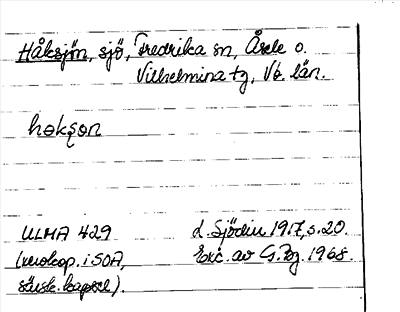 Håksjön, sjö, Fredrika sn, Åsele o.
Vilhelmina tg, Vb. län.
hokşon
ULMA 429
(xerokop. i SOA,
särsk. kapsel).
d. Sjödin 1917, s. 20.
Exc. av G. Bg. 1968.